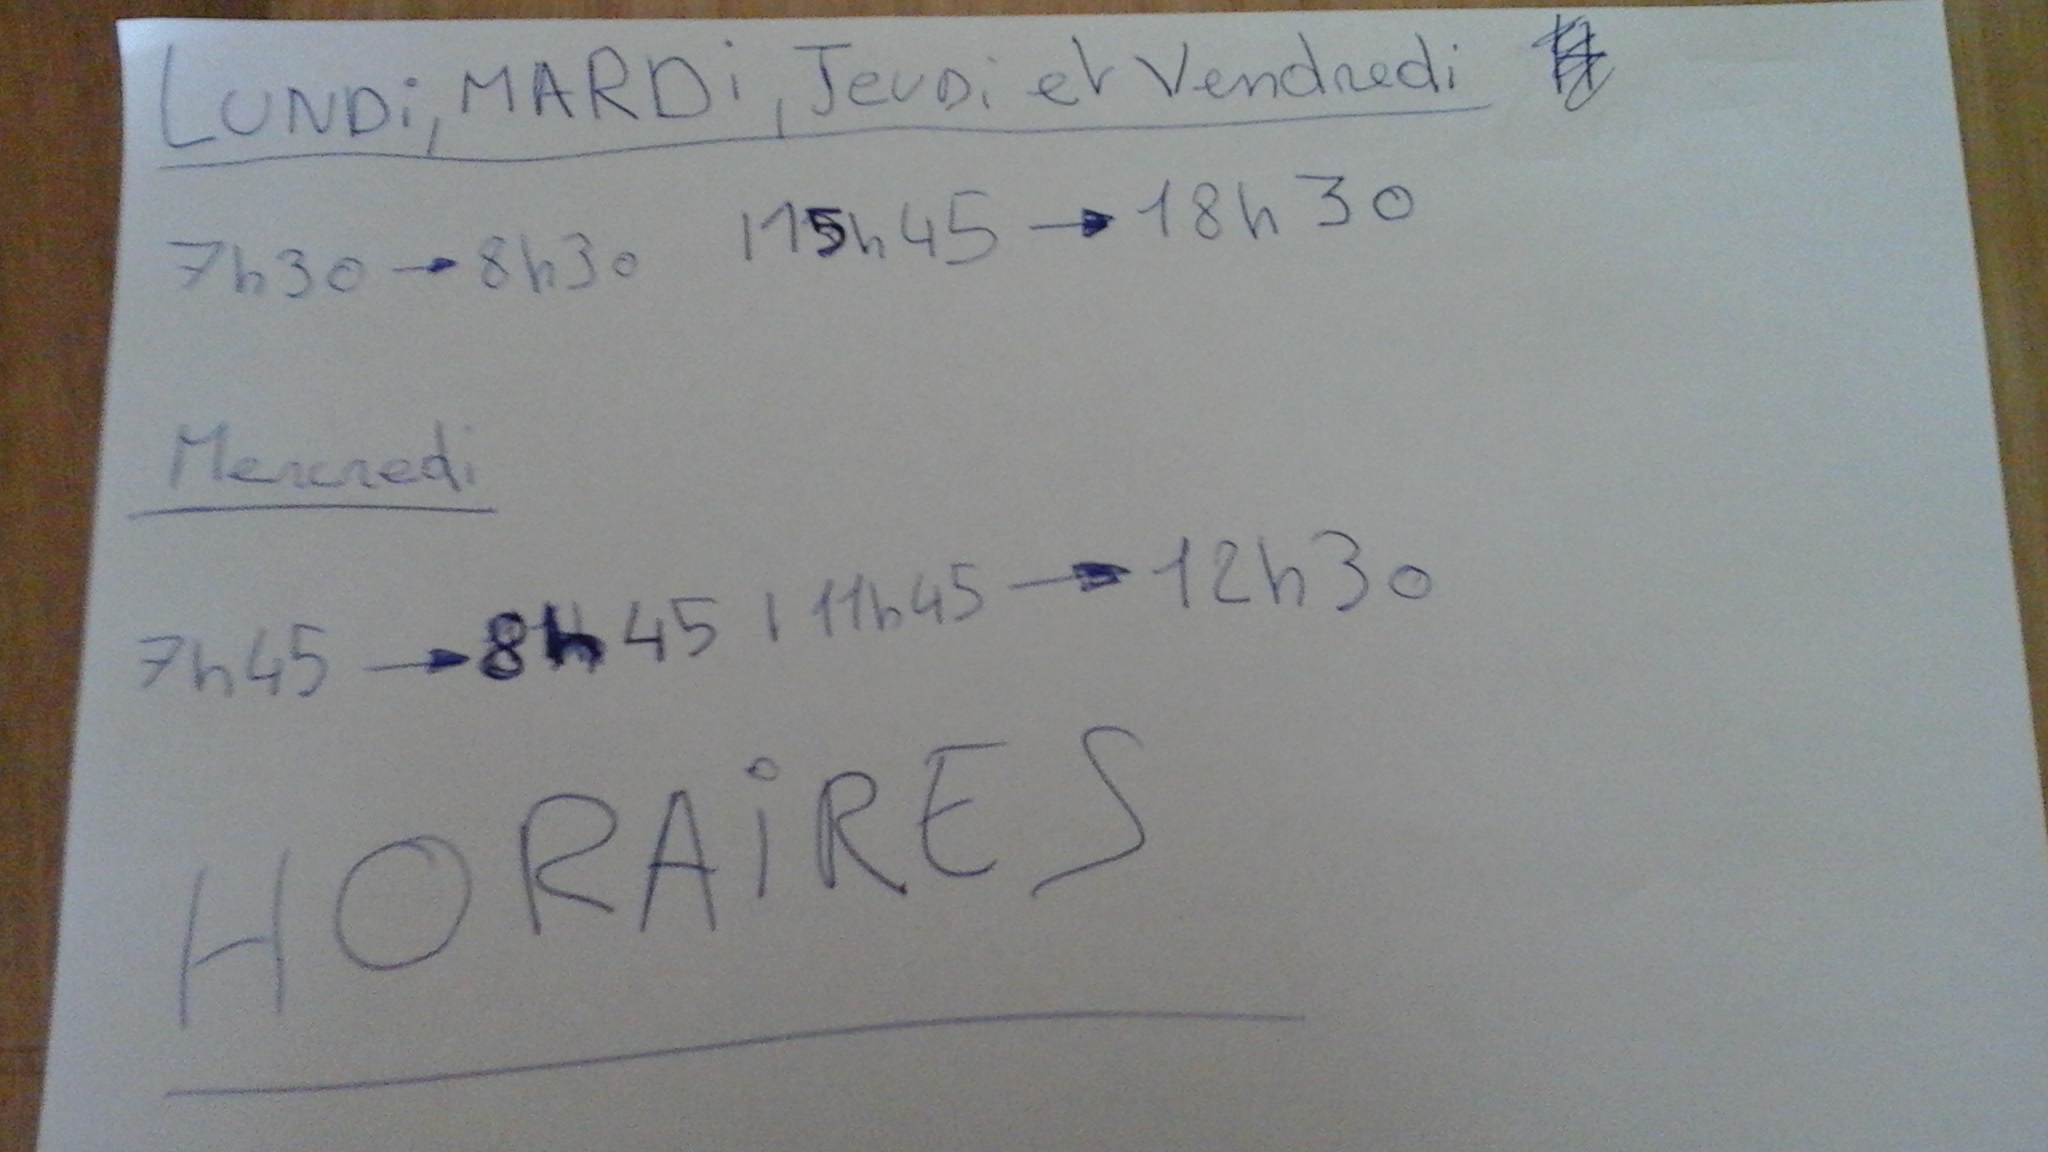 LUNDi, MARDi, JeuDi et Vendredi
7h30 → 8h30 | 15h45 → 18h30
Mercredi
7h45 → 8h45 | 11h45 → 12h30
HORAiRES